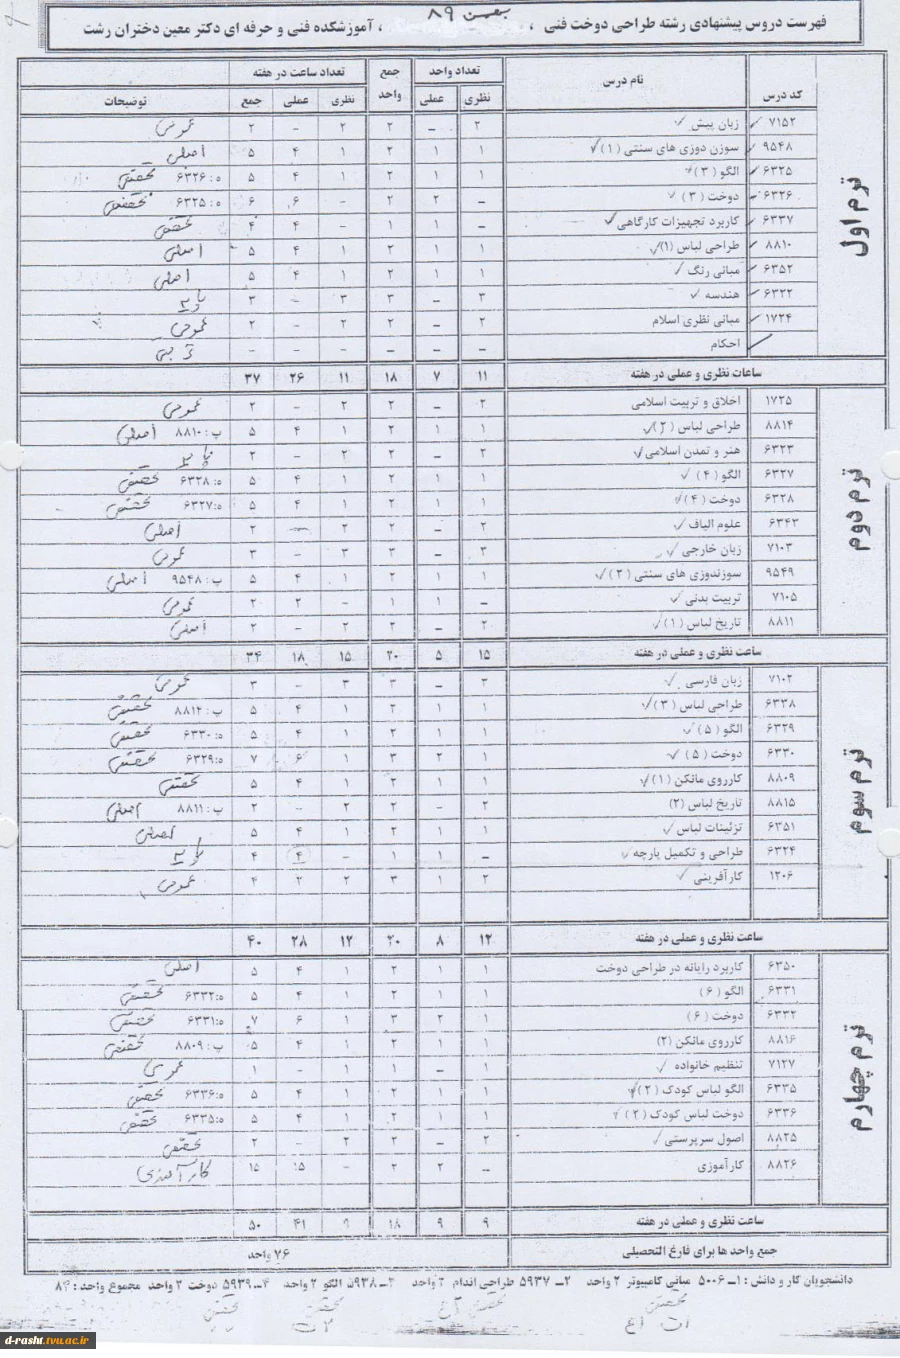 بهمن ۸۹
فهرست دروس پیشنهادی رشته طراحی دوخت فنی ، ، آموزشکده فنی و حرفه ای دکتر معین دختران رشت
کد درس نام درس تعداد واحد جمع واحد تعداد ساعت در هفته توضیحات
نظری عملی نظری عملی جمع
ترم اول
۷۱۵۲ زبان پیش ۲ – ۲ ۲ – ۲ عمومی
۹۵۴۸ سوزن دوزی های سنتی (۱) ۱ ۱ ۲ ۱ ۴ ۵ اصلی
۶۳۲۵ الگو (۳) ۱ ۱ ۲ ۱ ۴ ۵ ه: ۶۳۲۶ تخصصی
۶۳۲۶ دوخت (۳) – ۲ ۲ – ۶ ۶ ه: ۶۳۲۵ تخصصی
۶۳۳۷ کاربرد تجهیزات کارگاهی – ۱ ۱ – ۴ ۴ تخصصی
۸۸۱۰ طراحی لباس (۱) ۱ ۱ ۲ ۱ ۴ ۵ اصلی
۶۳۵۲ مبانی رنگ ۱ ۱ ۲ ۱ ۴ ۵ اصلی
۶۳۲۲ هندسه ۳ – ۳ ۳ – ۳ پایه
۱۷۲۴ مبانی نظری اسلام ۲ – ۲ ۲ – ۲ عمومی
احکام – – – – – –
ساعات نظری و عملی در هفته ۱۱ ۷ ۱۸ ۱۱ ۲۶ ۳۷
ترم دوم
۱۷۲۵ اخلاق و تربیت اسلامی ۲ – ۲ ۲ – ۲ عمومی
۸۸۱۴ طراحی لباس (۲) ۱ ۱ ۲ ۱ ۴ ۵ پ: ۸۸۱۰ اصلی
۶۳۲۳ هنر و تمدن اسلامی ۲ – ۲ ۲ – ۲ پایه
۶۳۲۷ الگو (۴) ۱ ۱ ۲ ۱ ۴ ۵ ه: ۶۳۲۸ تخصصی
۶۳۲۸ دوخت (۴) ۱ ۱ ۲ ۱ ۴ ۵ ه: ۶۳۲۷ تخصصی
۶۳۴۳ علوم الیاف ۲ – ۲ ۲ – ۲ اصلی
۷۱۰۳ زبان خارجی ۳ – ۳ ۳ – ۳ عمومی
۹۵۴۹ سوزندوزی های سنتی (۲) ۱ ۱ ۲ ۱ ۴ ۵ پ: ۹۵۴۸ اصلی
۷۱۰۵ تربیت بدنی – ۱ ۱ – ۲ ۲ عمومی
۸۸۱۱ تاریخ لباس (۱) ۲ – ۲ ۲ – ۲ اصلی
ساعت نظری و عملی در هفته ۱۵ ۵ ۲۰ ۱۵ ۱۸ ۳۴
ترم سوم
۷۱۰۲ زبان فارسی ۳ – ۳ ۳ – ۳ عمومی
۶۳۳۸ طراحی لباس (۳) ۱ ۱ ۲ ۱ ۴ ۵ پ: ۸۸۱۴ تخصصی
۶۳۲۹ الگو (۵) ۱ ۱ ۲ ۱ ۴ ۵ ه: ۶۳۳۰ تخصصی
۶۳۳۰ دوخت (۵) ۱ ۲ ۳ ۱ ۶ ۷ ه: ۶۳۲۹ تخصصی
۸۸۰۹ کارروی مانکن (۱) ۱ ۱ ۲ ۱ ۴ ۵ تخصصی
۸۸۱۵ تاریخ لباس (۲) ۲ – ۲ ۲ – ۲ پ: ۸۸۱۱ اصلی
۶۳۵۱ تزئینات لباس ۱ ۱ ۲ ۱ ۴ ۵ اصلی
۶۳۲۴ طراحی و تکمیل پارچه – ۱ ۱ – ۴ ۴ پایه
۱۲۰۶ کارآفرینی ۲ ۱ ۳ ۲ ۲ ۴ عمومی
ساعت نظری و عملی در هفته ۱۲ ۸ ۲۰ ۱۲ ۲۸ ۴۰
ترم چهارم
۶۳۵۰ کاربرد رایانه در طراحی دوخت ۱ ۱ ۲ ۱ ۴ ۵ اصلی
۶۳۳۱ الگو (۶) ۱ ۱ ۲ ۱ ۴ ۵ ه: ۶۳۳۲ تخصصی
۶۳۳۲ دوخت (۶) ۱ ۲ ۳ ۱ ۶ ۷ ه: ۶۳۳۱ تخصصی
۸۸۱۶ کارروی مانکن (۲) ۱ ۱ ۲ ۱ ۴ ۵ پ: ۸۸۰۹ تخصصی
۷۱۲۷ تنظیم خانواده ۱ – ۱ ۱ – ۱ عمومی
۶۳۳۵ الگو لباس کودک (۲) ۱ ۱ ۲ ۱ ۴ ۵ ه: ۶۳۳۶ تخصصی
۶۳۳۶ دوخت لباس کودک (۲) ۱ ۱ ۲ ۱ ۴ ۵ ه: ۶۳۳۵ تخصصی
۸۸۲۵ اصول سرپرستی ۲ – ۲ ۲ – ۲ تخصصی
۸۸۲۶ کارآموزی – ۲ ۲ – ۱۵ ۱۵ کارآموزی
ساعت نظری و عملی در هفته ۹ ۹ ۱۸ ۹ ۴۱ ۵۰
جمع واحد ها برای فارغ التحصیلی ۷۶ واحد
دانشجویان کار و دانش: ۱ـ ۵۰۰۶ مبانی کامپیوتر ۲ واحد ۲ـ ۵۹۳۷ طراحی اندام ۲ واحد ۳ـ ۵۹۳۸ الگو ۲ واحد ۴ـ ۵۹۳۹ دوخت ۲ واحد مجموع واحد: ۸۴
تخصصی تخصصی تخصصی تخصصی
d-rasht.tvu.ac.ir